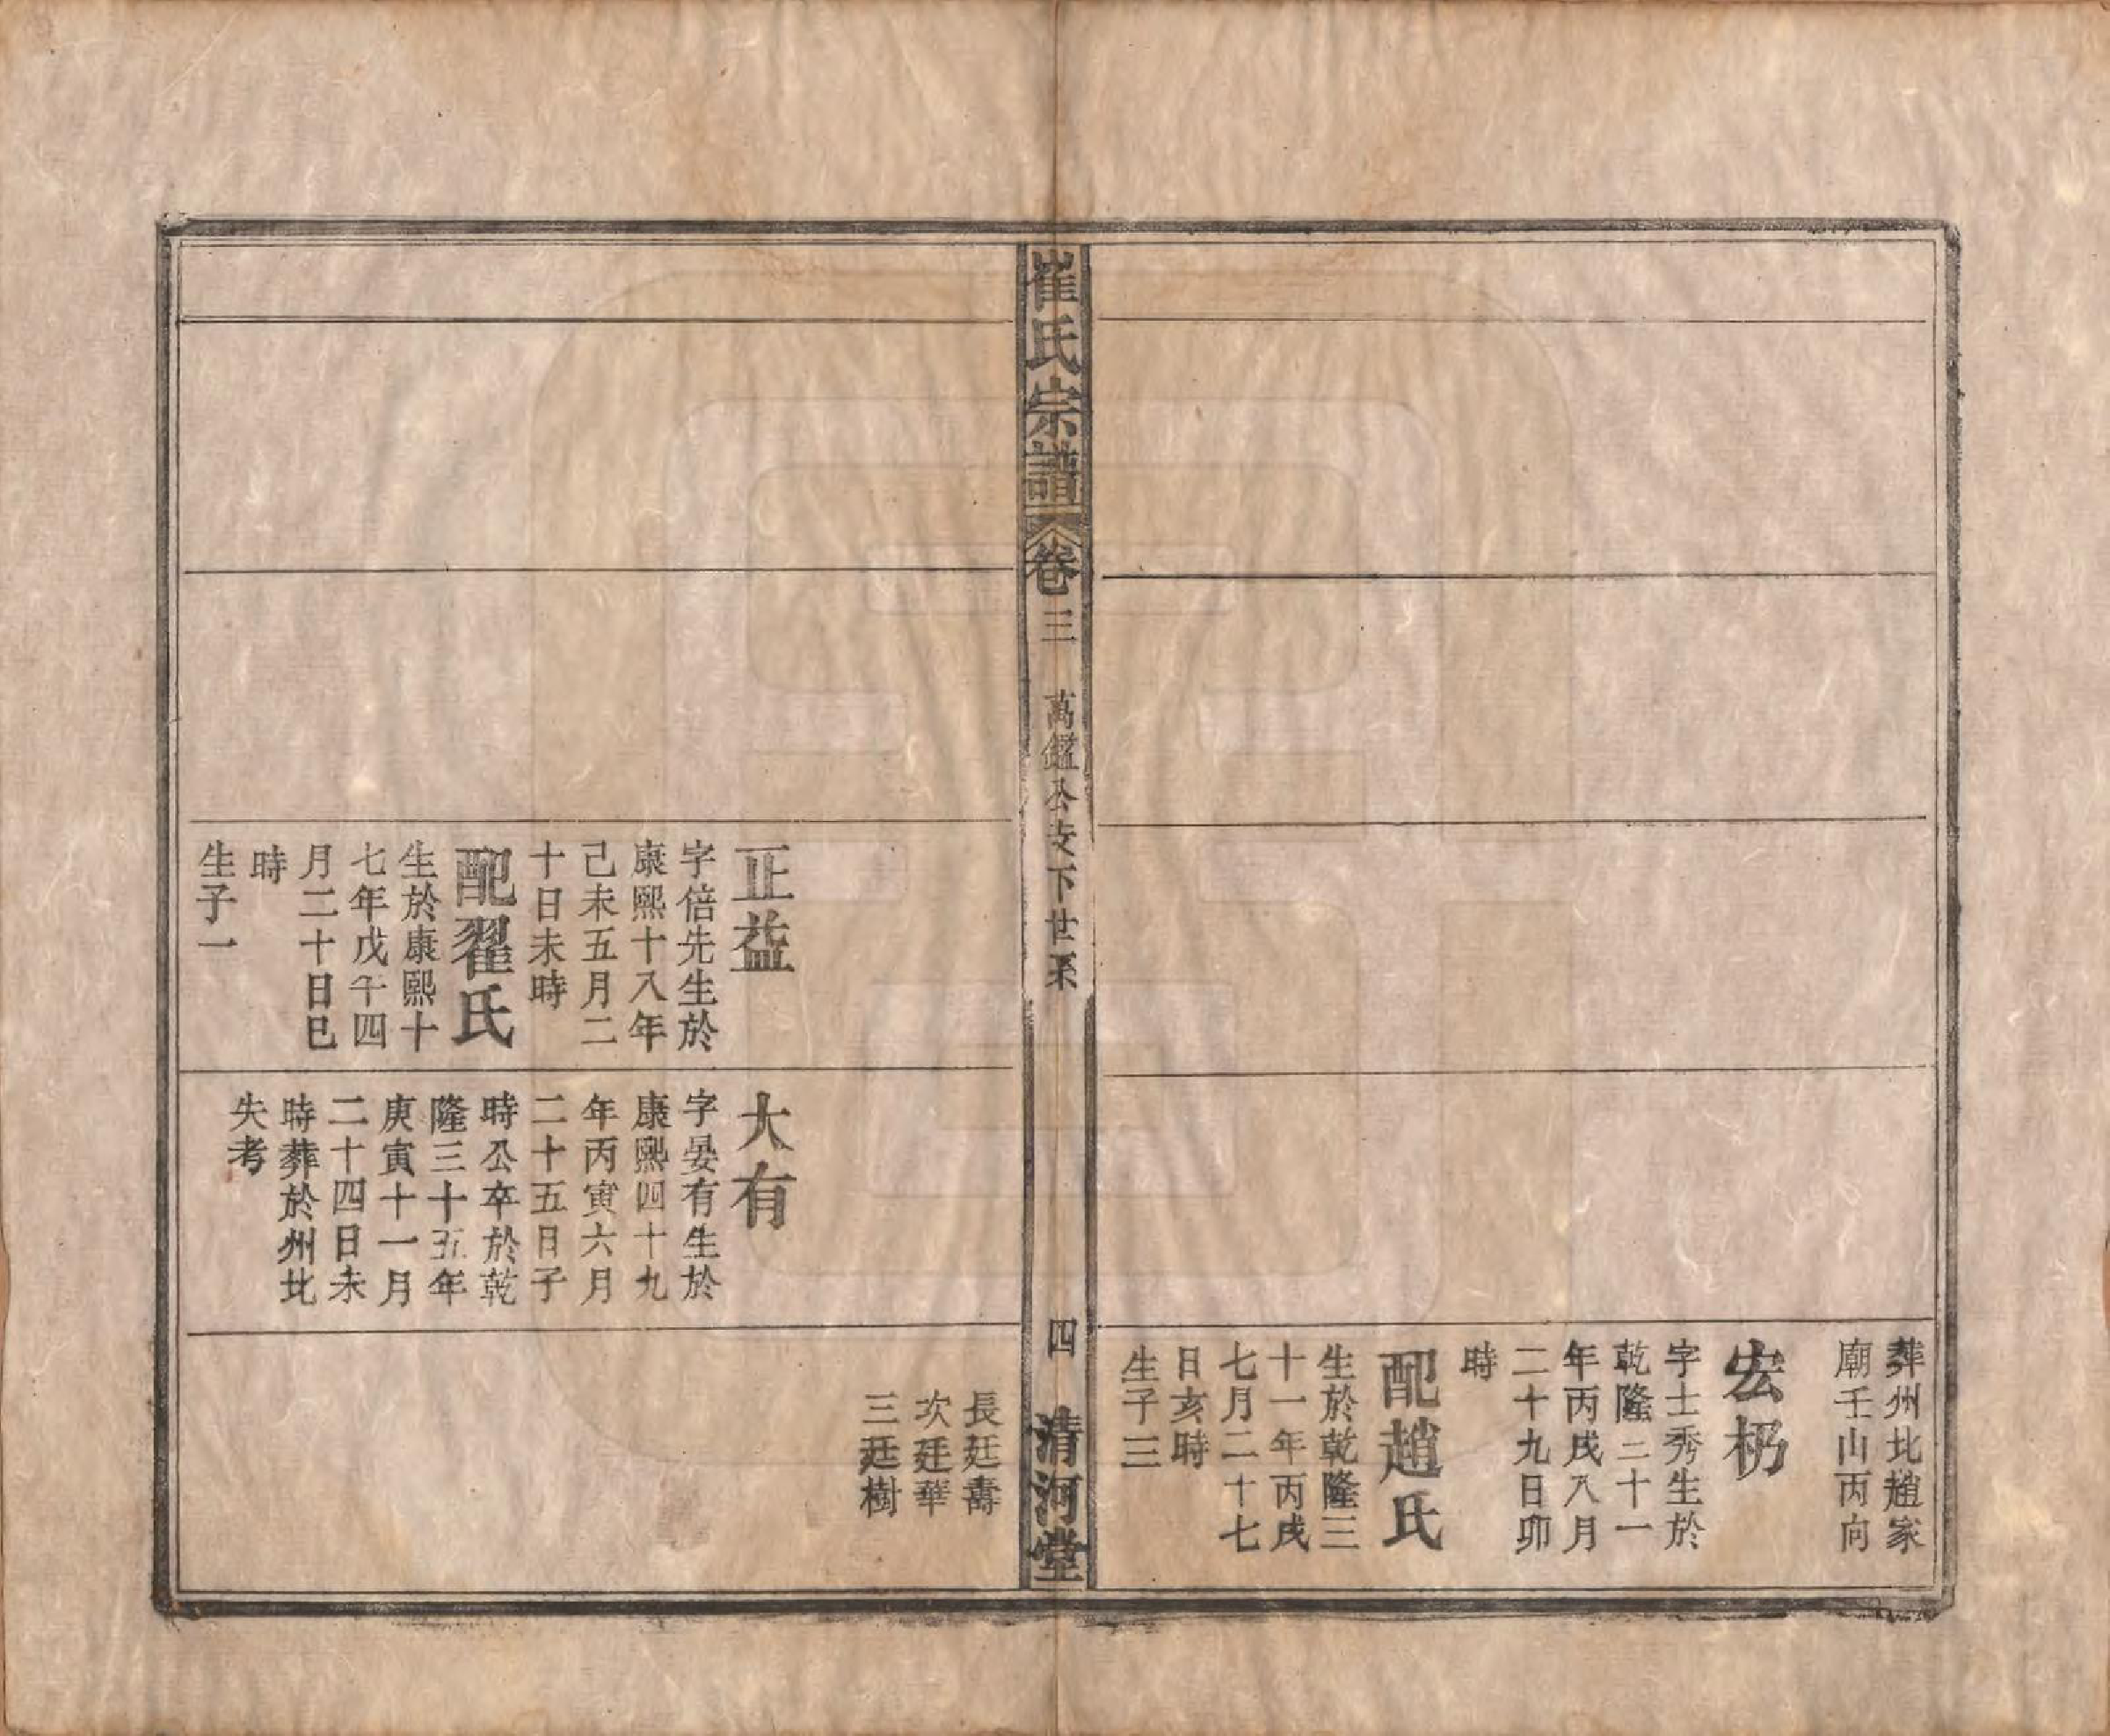 葬州北趙家
廟壬山丙向
宏枬
字士秀生於
乾隆三十一
年丙戌八月
二十九日卯
時
配趙氏
生於乾隆三
十一年丙戌
七月二十七
日亥時
生子三
崔氏宗譜
卷三
萬鑑公支下世系
四
清河堂
長廷壽
次廷華
三廷樹
正益
字倍先生於
康熙十八年
己未五月二
十日未時
配翟氏
生於康熙十
七年戊午四
月二十日巳
時
生子一
大有
字晏有生於
康熙四十九
年丙寅六月
二十五日子
時公卒於乾
隆三十五年
庚寅十一月
二十四日未
時葬於州北
失考